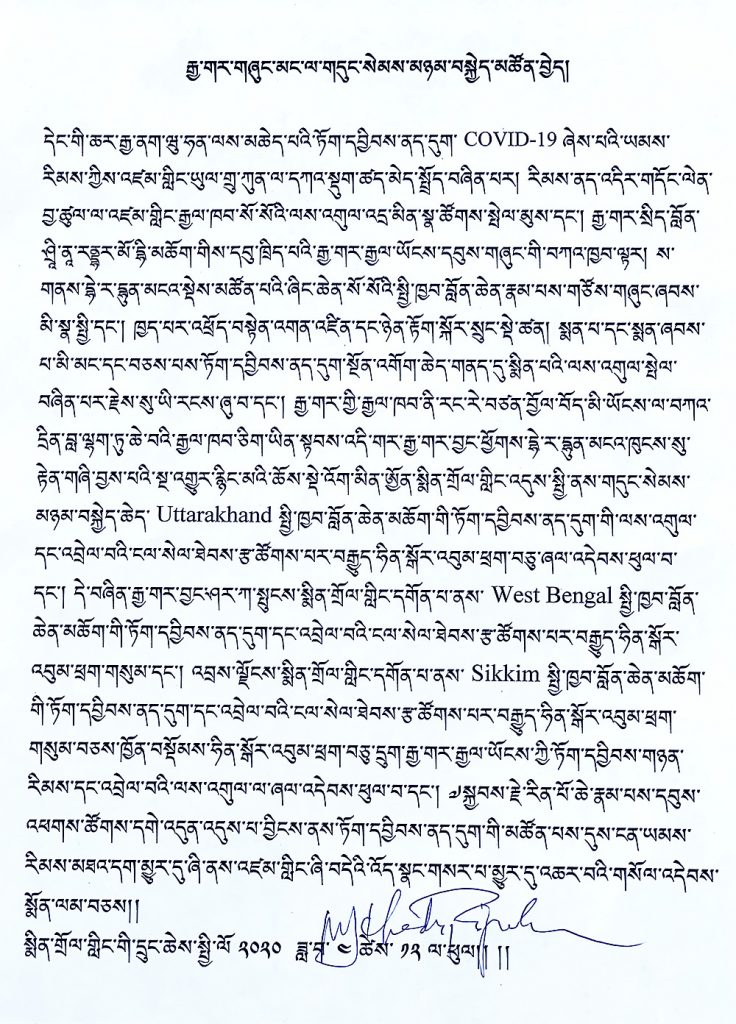 རྒྱ་གར་གཞུང་མང་ལ་གདུང་སེམས་མཉམ་བསྐྱེད་མཚོན་བྱེད།
དེང་གི་ཆར་རྒྱ་ནག་ཝུ་ཧན་ལས་མཆེད་པའི་ཏོག་དབྱིབས་ནད་དུག་ COVID-19 ཞེས་པའི་ཡམས་
རིམས་ཀྱིས་འཛམ་གླིང་ཡུལ་གྲུ་ཀུན་ལ་དཀའ་སྡུག་ཚད་མེད་སྤྲོད་བཞིན་པར། རིམས་ནད་འདིར་གདོང་ལེན་
བྱ་ཚུལ་ལ་འཛམ་གླིང་རྒྱལ་ཁབ་སོ་སོའི་ལས་འགུལ་འདྲ་མིན་སྣ་ཚོགས་སྤེལ་མུས་དང་། རྒྱ་གར་སྲིད་བློན་
ཤྲཱི་ནཱ་རནྡྲར་མོ་དྷི་མཆོག་གིས་དབུ་ཁྲིད་པའི་རྒྱ་གར་རྒྱལ་ཡོངས་དབུས་གཞུང་གི་བཀའ་ཁྱབ་ལྟར། ས་
གནས་དྷེ་ར་དྷུན་མངའ་སྡེས་མཚོན་པའི་ཞིང་ཆེན་སོ་སོའི་སྤྱི་ཁྱབ་བློན་ཆེན་རྣམ་པས་གཙོས་གཞུང་ཞབས་
མི་སྣ་སྤྱི་དང་། ཁྱད་པར་འཕྲོད་བསྟེན་འགན་འཛིན་དང་ཉེན་རྟོག་སྐོར་སྲུང་སྡེ་ཚན། སྨན་པ་དང་སྨན་ཞབས་
པ་མི་མང་དང་བཅས་པས་ཏོག་དབྱིབས་ནད་དུག་སྔོན་འགོག་ཆེད་གནད་དུ་སྨིན་པའི་ལས་འགུལ་སྤེལ་
བཞིན་པར་རྗེས་སུ་ཡི་རངས་ཞུ་བ་དང་། རྒྱ་གར་གྱི་རྒྱལ་ཁབ་ནི་རང་རེ་བཙན་བྱོལ་བོད་མི་ཡོངས་ལ་བཀའ་
དྲིན་བླ་ལྷག་ཏུ་ཆེ་བའི་རྒྱལ་ཁབ་ཅིག་ཡིན་སྟབས་འདི་གར་རྒྱ་གར་བྱང་ཕྱོགས་དྷེ་ར་དྷུན་མངའ་ཁུངས་སུ་
རྟེན་གཞི་བྱས་པའི་སྔ་འགྱུར་རྙིང་མའི་ཆོས་སྡེ་འོག་མིན་ཨོྱན་སྨིན་གྲོལ་གླིང་འདུས་སྤྱི་ནས་གདུང་སེམས་
མཉམ་བསྐྱེད་ཆེད་ Uttarakhand སྤྱི་ཁྱབ་བློན་ཆེན་མཆོག་གི་ཏོག་དབྱིབས་ནད་དུག་གི་ལས་འགུལ་
དང་འབྲེལ་བའི་ངལ་སེལ་ཐེབས་རྩ་ཚོགས་པར་བརྒྱུད་ཧིན་སྒོར་འབུམ་ཕྲག་བཅུ་ཞལ་འདེབས་ཕུལ་བ་
དང་། དེ་བཞིན་རྒྱ་གར་བྱང་ཤར་ཀ་སྤུངས་སྨིན་གྲོལ་གླིང་དགོན་པ་ནས་ West Bengal སྤྱི་ཁྱབ་བློན་
ཆེན་མཆོག་གི་ཏོག་དབྱིབས་ནད་དུག་དང་འབྲེལ་བའི་ངལ་སེལ་ཐེབས་རྩ་ཚོགས་པར་བརྒྱུད་ཧིན་སྒོར་
འབུམ་ཕྲག་གསུམ་དང་། འབྲས་ལྗོངས་སྨིན་གྲོལ་གླིང་དགོན་པ་ནས་ Sikkim སྤྱི་ཁྱབ་བློན་ཆེན་མཆོག་
གི་ཏོག་དབྱིབས་ནད་དུག་དང་འབྲེལ་བའི་ངལ་སེལ་ཐེབས་རྩ་ཚོགས་པར་བརྒྱུད་ཧིན་སྒོར་འབུམ་ཕྲག་
གསུམ་བཅས་ཁྱོན་བསྡོམས་ཧིན་སྒོར་འབུམ་ཕྲག་བཅུ་དྲུག་རྒྱ་གར་རྒྱལ་ཡོངས་ཀྱི་ཏོག་དབྱིབས་གཉན་
རིམས་དང་འབྲེལ་བའི་ལས་འགུལ་ལ་ཞལ་འདེབས་ཕུལ་བ་དང་། ༧སྐྱབས་རྗེ་རིན་པོ་ཆེ་རྣམ་པས་དབུས་
འཕགས་ཚོགས་དགེ་འདུན་འདུས་པ་བྱིངས་ནས་ཏོག་དབྱིབས་ནད་དུག་གི་མཚོན་པས་དུས་ངན་ཡམས་
རིམས་མཐའ་དག་མྱུར་དུ་ཞི་ནས་འཛམ་གླིང་ཞི་བདེའི་འོད་སྣང་གསར་པ་མྱུར་དུ་འཆར་བའི་གསོལ་འདེབས་
སྨོན་ལམ་བཅས།།
སྨིན་གྲོལ་གླིང་གི་དྲུང་ཆེས་སྤྱི་ལོ་ ༢༠༢༠ ཟླ་བ་ ༤ ཚེས་ ༡༢ ལ་ཕུལ།། །།